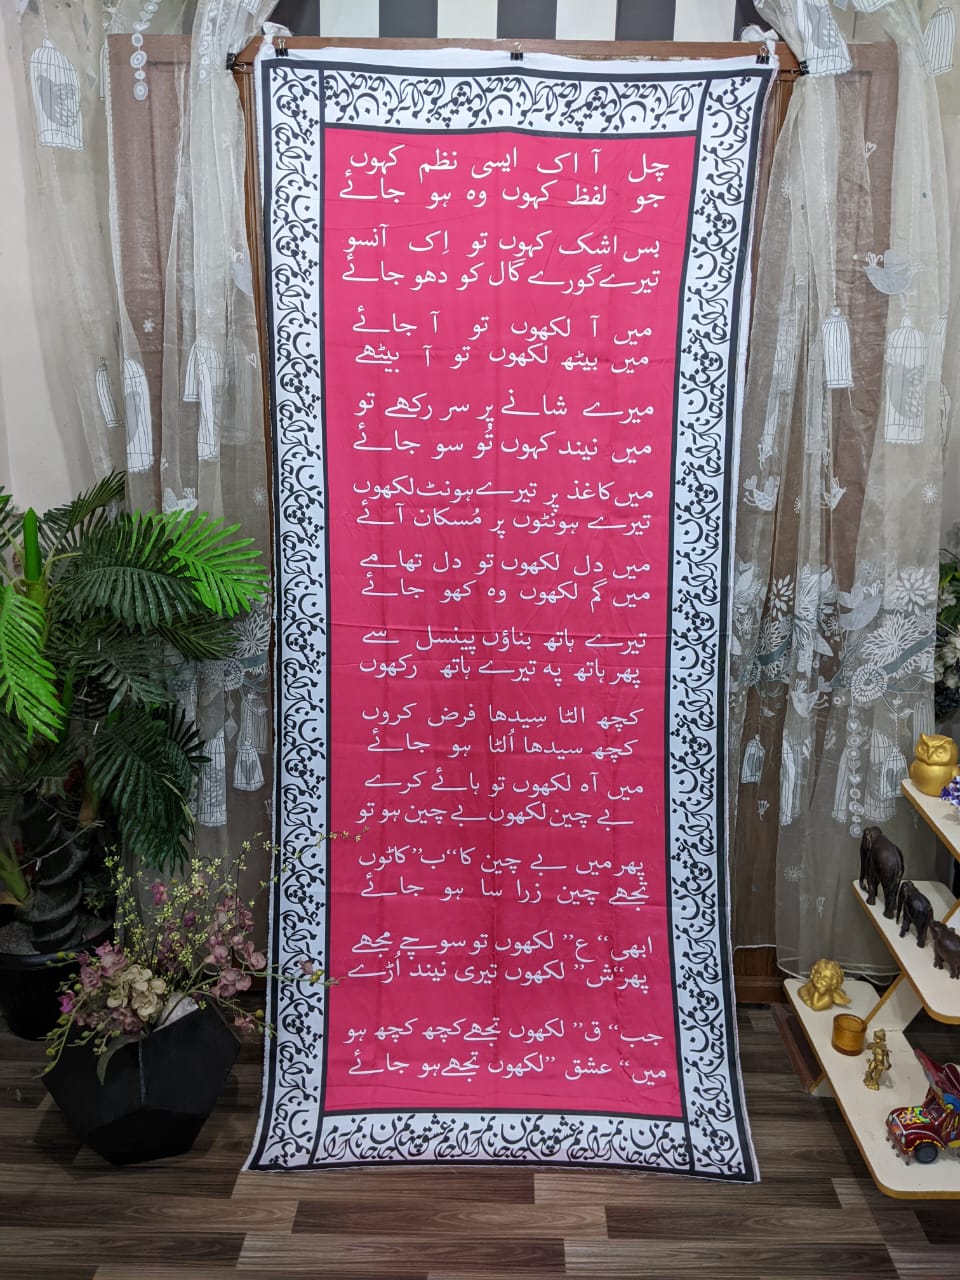 چل آ اک ایسی نظم کہوں
جو لفظ کہوں وہ ہو جائے
بس اشک کہوں تو اِک آنسو
تیرے گورے گال کو دھو جائے
میں آ لکھوں تو آ جائے
میں بیٹھ لکھوں تو آ بیٹھے
میرے شانے پر سر رکھے تو
میں نیند کہوں تُو سو جائے
میں کاغذ پر تیرے ہونٹ لکھوں
تیرے ہونٹوں پر مُسکان آئے
میں دل لکھوں تو دل تھامے
میں گم لکھوں وہ کھو جائے
تیرے ہاتھ بناؤں پینسل سے
پھر ہاتھ پہ تیرے ہاتھ رکھوں
کچھ الٹا سِیدھا فرض کروں
کچھ سیدھا اُلٹا ہو جائے
میں آہ لکھوں تو ہائے کرے
بے چین لکھوں بے چین ہو تو
پھر میں بے چین کا “ب” کاٹوں
تجھے چین زرا سا ہو جائے
ابھی “ع” لکھوں تو سوچے مجھے
پھر “ش” لکھوں تیری نیند اُڑے
جب “ق” لکھوں تجھے کچھ کچھ ہو
میں “عشق” لکھوں تجھے ہو جائے